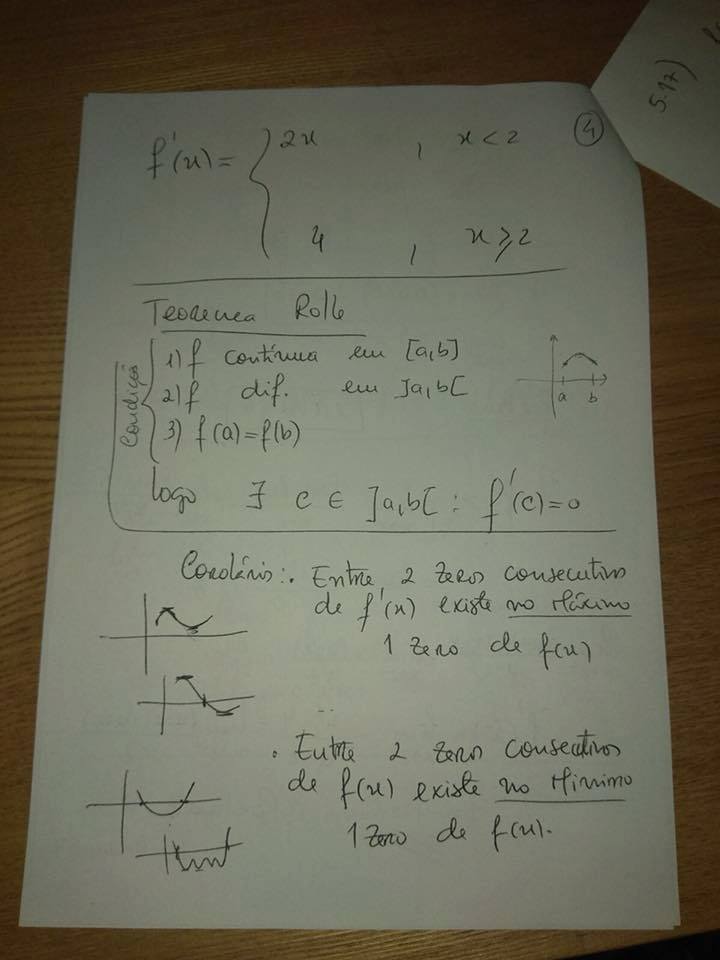 ④
f'(x) = { 2x , x < 2
4 , x ⩾ 2
Teorema Rolle
Condições
1) f contínua em [a,b]
2) f dif. em ]a,b[
3) f(a)=f(b)
a b
logo ∃ c ∈ ]a,b[ : f'(c)=0
Corolários: . Entre 2 zeros consecutivos
de f'(x) existe no Máximo
1 zero de f(x)
. Entre 2 zeros consecutivos
de f(x) existe no Mínimo
1 zero de f(x).
5.17)